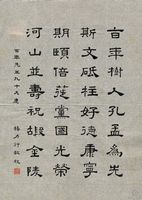 百年樹人孔孟為先
斯文砥柱好德康寧
期頤倍蓰黨國光榮
河山並壽祝嘏金陵
百年先生九十大慶